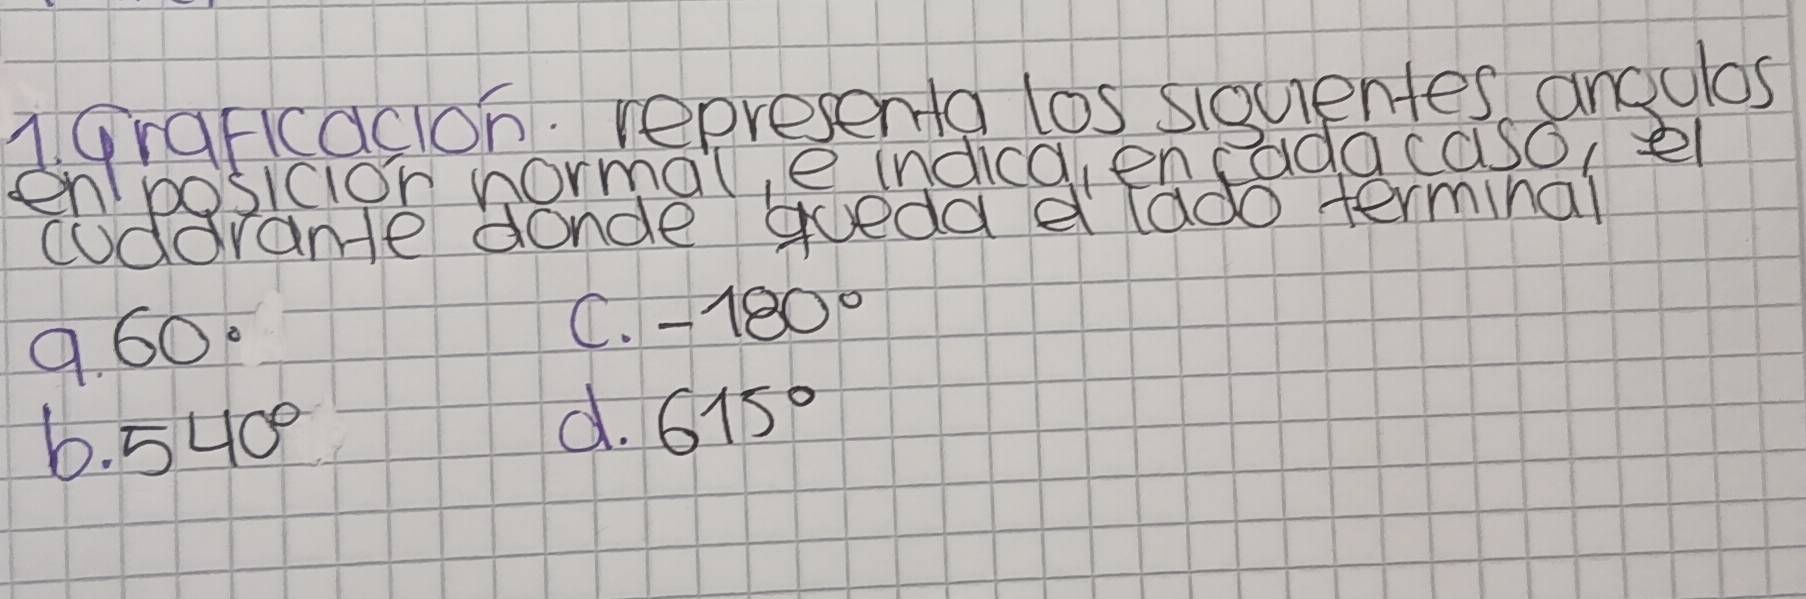 1. Graficación. representa los siguientes angulos
en posición normal, e indica, en cada caso, el
cuadrante donde queda el lado terminal
a. 60° c. -180°
b. 540° d. 615°